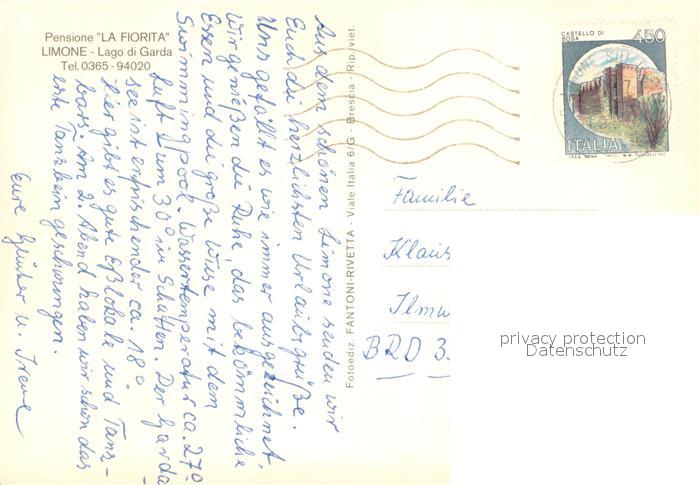 Pensione "LA FIORITA"
LIMONE - Lago di Garda
Tel. 0365 - 94020
Aus dem schönen Limone senden wir
Euch die herzlichsten Urlaubsgrüße.
Uns gefällt es wie immer ausgezeichnet.
Wir genießen die Ruhe, das bekömmliche
Essen und die große Wiese mit dem
Swimmingpool. Wassertemperatur ca. 27°
Luft um 30° im Schatten. Der Garda
see ist erfrischender ca. 18°
Hier gibt es gute Eßlokale und Tanz-
bars. Am 2. Abend haben wir schon das
erste Tanzbein geschwungen.
Eure Günter u. Irene
Fotoediz. FANTONI-RIVETTA - Viale Italia 6/G - Brescia - Rip. viet.
CASTELLO DI
BOSA
450
ITALIA
Familie
Klaus
Ilmu
BRD 3
privacy protection
Datenschutz